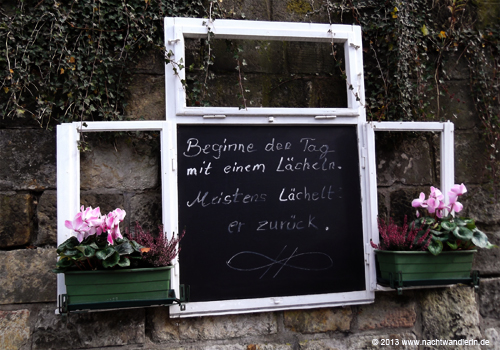 Beginne den Tag
mit einem Lächeln.
Meistens Lächelt
er zurück.
© 2013 www.nachtwandlerin.de